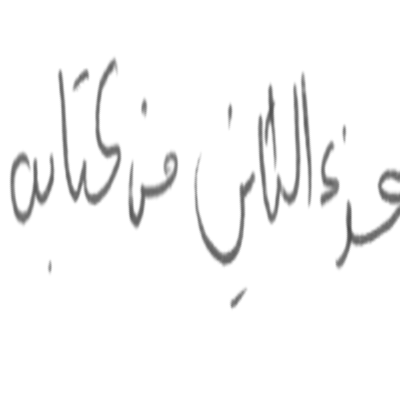 الثاني من كتابه